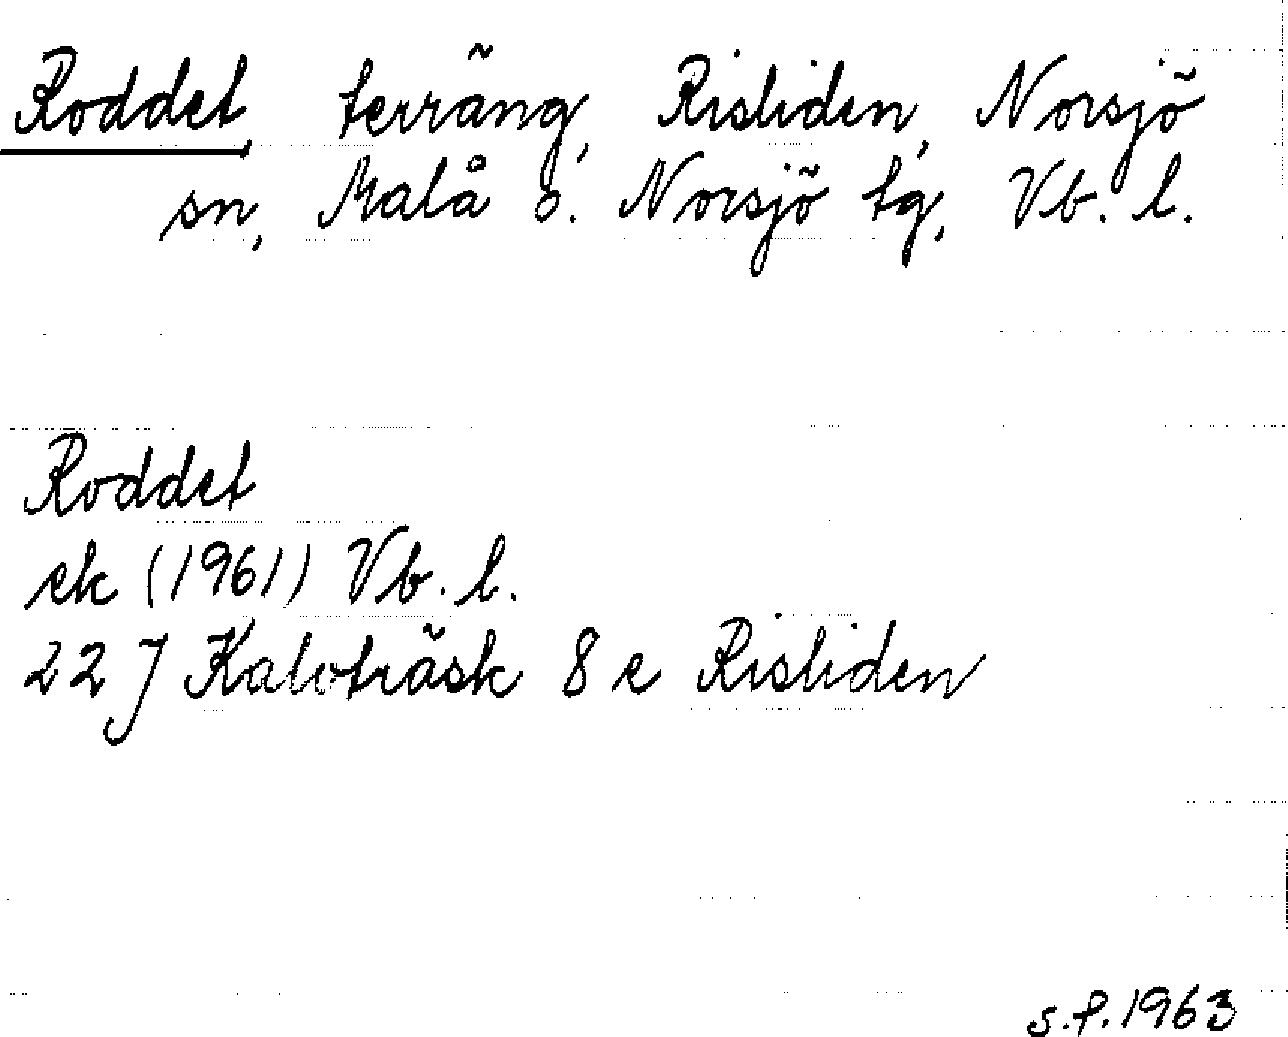 Roddet, terräng, Risliden, Norsjö
sn, Malå o. Norsjö tg, Vb. l.
Roddet
ek (1961) Vb. l.
22 J Kalvträsk 8 e Risliden
s.f. 1963